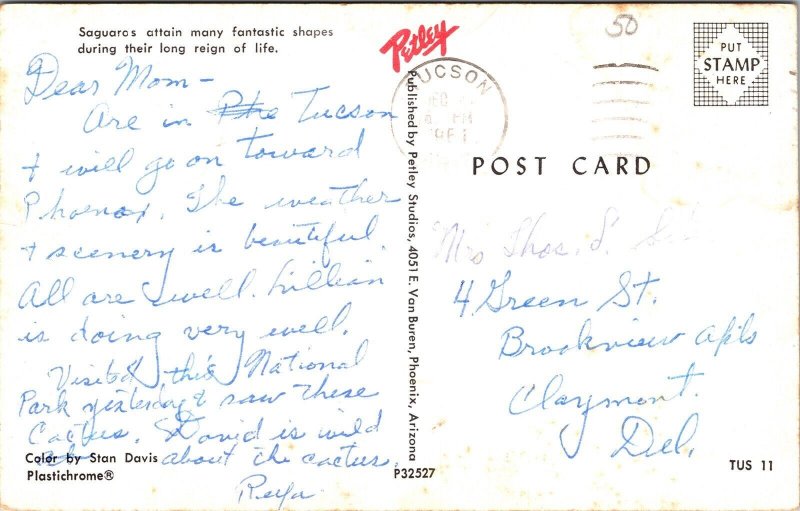 Saguaros attain many fantastic shapes
during their long reign of life.
Dear Mom -
Are in Phe Tucson
+ will go on toward
Phoenox. The weather
+ scenery is beautiful.
All are swell. Lillian
is doing very well.
Visited this National
Park yesterday & saw these
Cactus. David is wild
about the cactus.
Color by Stan Davis
Plastichrome®
Petley
Published by Petley Studios, 4051 E. Van Buren, Phoenix, Arizona
P32527
50
TUCSON
PM
PUT
STAMP
HERE
POST CARD
Mrs Thos. S.
4 Green St.
Brookview Apts
Claymont.
Del.
TUS 11